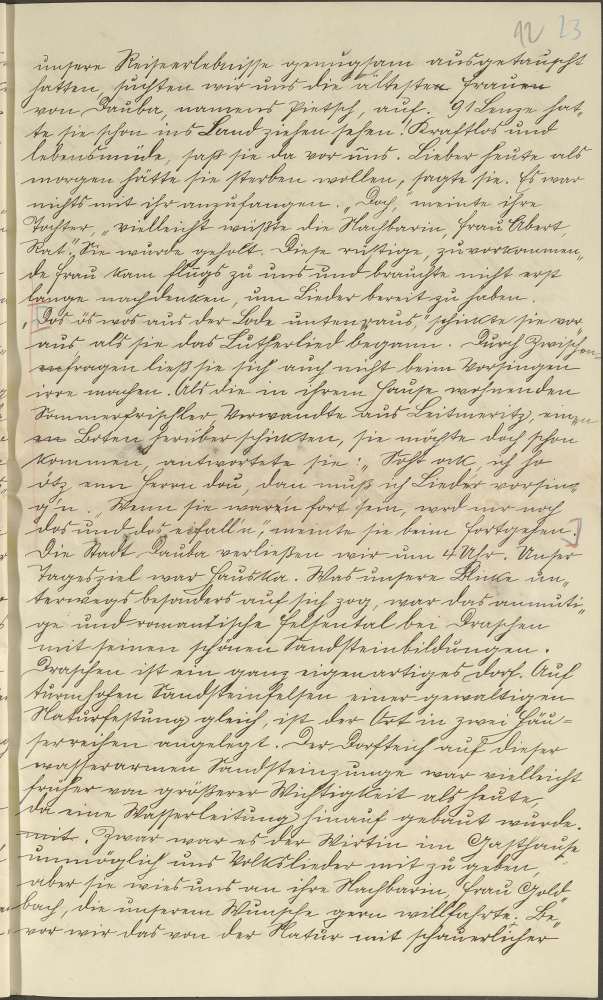 12 23
unsere Reiseerlebnisse genugsam ausgetauscht
hatten, suchten wir uns die ältesten Frauen
von Dauba, namens Pietsch, auf. 91 Lenze hat„
te sie schon ins Land ziehen sehen! Kraftlos und
lebensmüde, saß sie da vor uns. Lieber heute als
morgen hätte sie sterben wollen, sagte sie. Es war
nichts mit ihr anzufangen. „Doch," meinte ihre
Tochter, „vielleicht wüßte die Nachbarin, Frau Abert,
Rat". Sie wurde geholt. Diese rüstige, zuvorkommen„
de Frau kam flugs zu uns und brauchte nicht erst
lange nachdenken, um Lieder bereit zu haben.
„Dos ös wos aus der Lode unten raus," schickte sie vor
aus als sie das Lutherlied begann. Durch Zwischen-
fragen ließ sie sich auch nicht beim Vorsingen
irre machen. Als die in ihrem Hause wohnenden
Sommerfrischler Verwandte aus Leitmeritz, einen
Boten herüber schickten, sie möchte doch schon
kommen, antwortete sie: „ ock, ich ho
ötz enn Herrn dou, dan muß ich Lieder vorsing„
g'n. „Wenn sie waren fort sein, wrd mr noch
dos und dos eifall'n," meinte sie beim Fortgehen.
Die Stadt Dauba verließen wir um 4 Uhr. Unser
Tagesziel war Hauska. Was unsere Blicke un„
terwegs besonders auf sich zog, war das anmuti„
ge und romantische Felsental bei Draschen
mit seinen schönen Sandsteinbildungen.
Draschen ist ein ganz eigenartiges Dorf. Auf
turmhohen Sandsteinfelsen einer gewaltigen
Naturfestung gleich, ist der Ort in zwei Häu=
serreihen angelegt. Der Dorfteich auf dieser
wasserarmen Sandsteinzunge war vielleicht
früher von größerer Wichtigkeit als heute,
da eine Wasserleitung hinauf gebaut wurde.
mit. Zwar war es der Wirtin im Gasthause
unmöglich uns Volkslieder mit zu geben,
aber sie wies uns an ihre Nachbarin, Frau Gold
bach, die unserem Wunsche gern willfahrte. Be„
vor wir das von der Natur mit schauerlicher